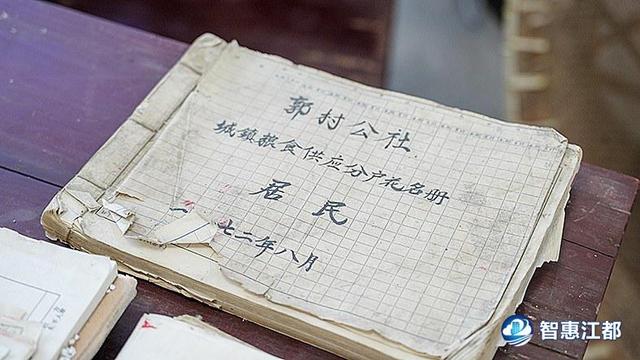 郭村公社
城镇粮食供应分户花名册
居民
一 七二年八月
智惠江都